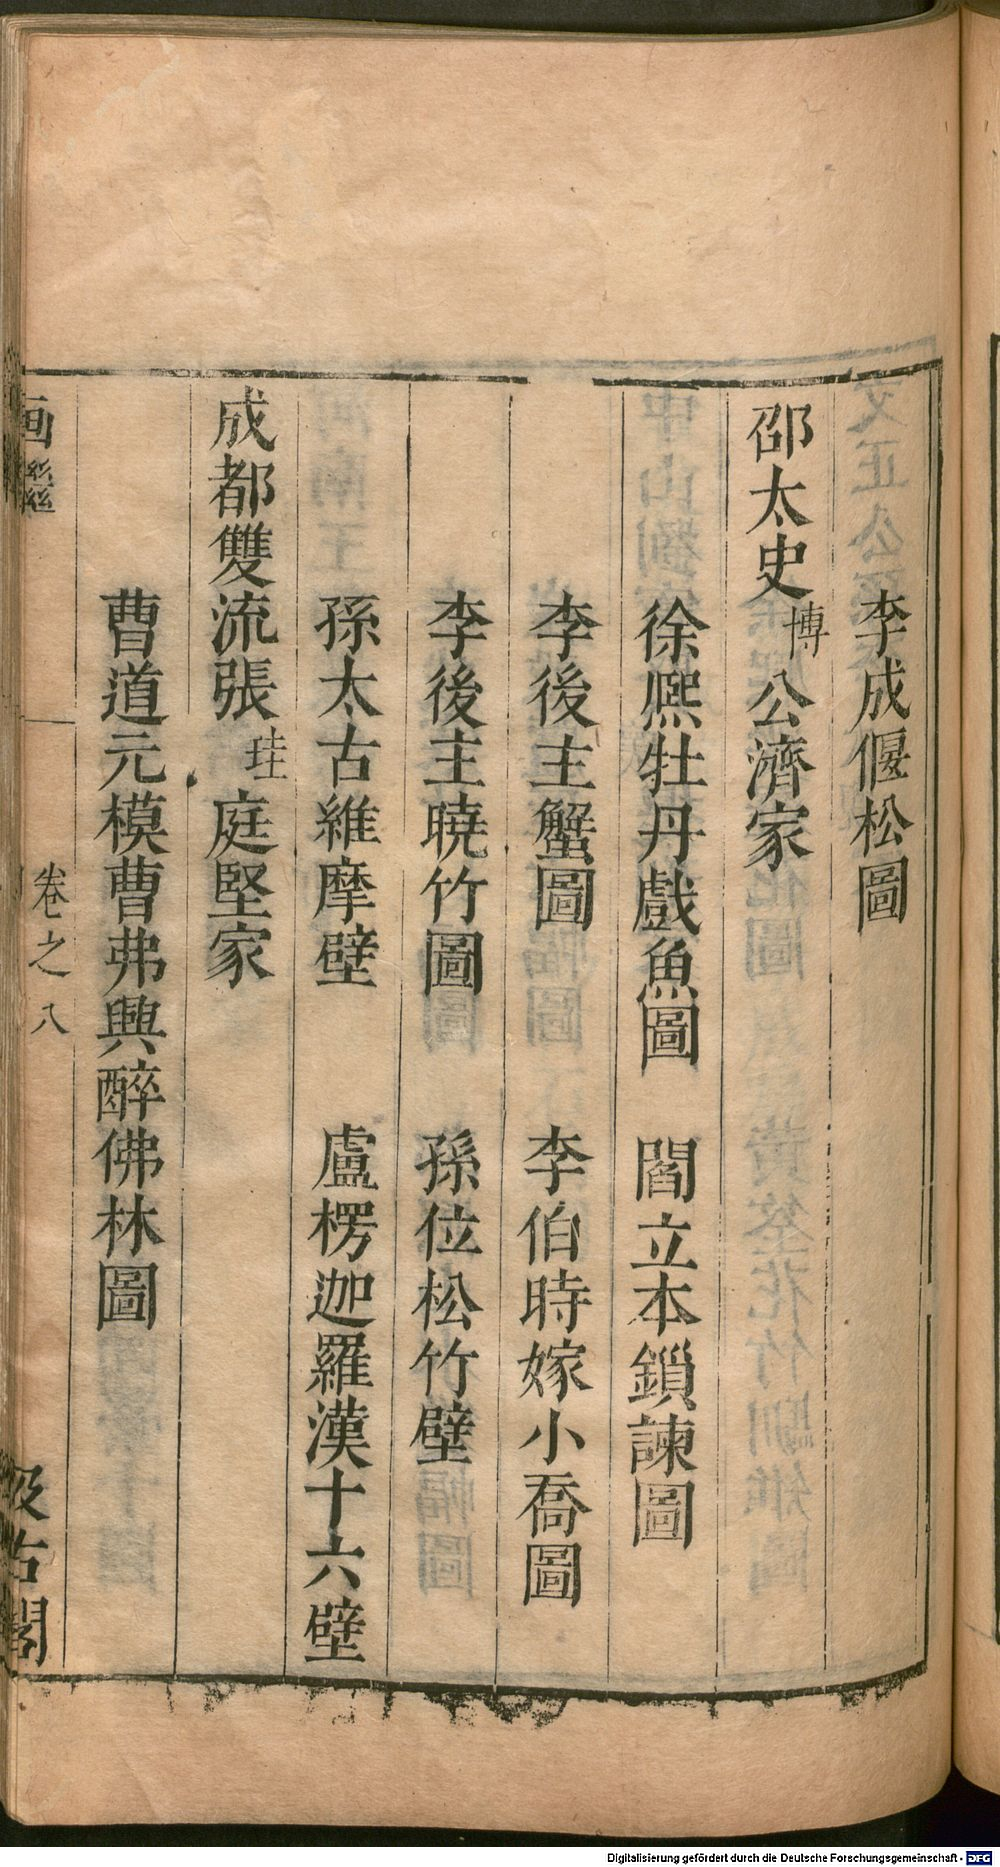 李成偃松圖
邵太史博公濟家
徐熙牡丹戲魚圖　閻立本鎖諫圖
李後主蟹圖　李伯時嫁小喬圖
李後主曉竹圖　孫位松竹壁
孫太古維摩壁　盧楞迦羅漢十六壁
成都雙流張珪庭堅家
曹道元模曹弗興醉佛林圖
画繼　卷之八　汲古閣
Digitalisierung gefördert durch die Deutsche Forschungsgemeinschaft - DFG